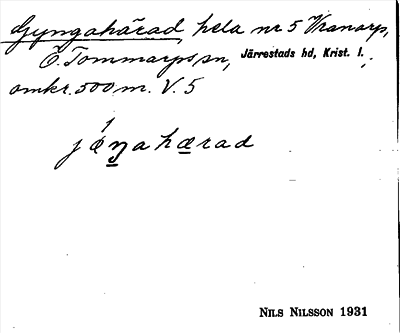 Gyngahärad, hela nr 5 Vranarp,
Ö. Tommarps sn, Järrestads hd, Krist. l.,
omkr. 500 m. V. 5
jøŋa hærad
NILS NILSSON 1931